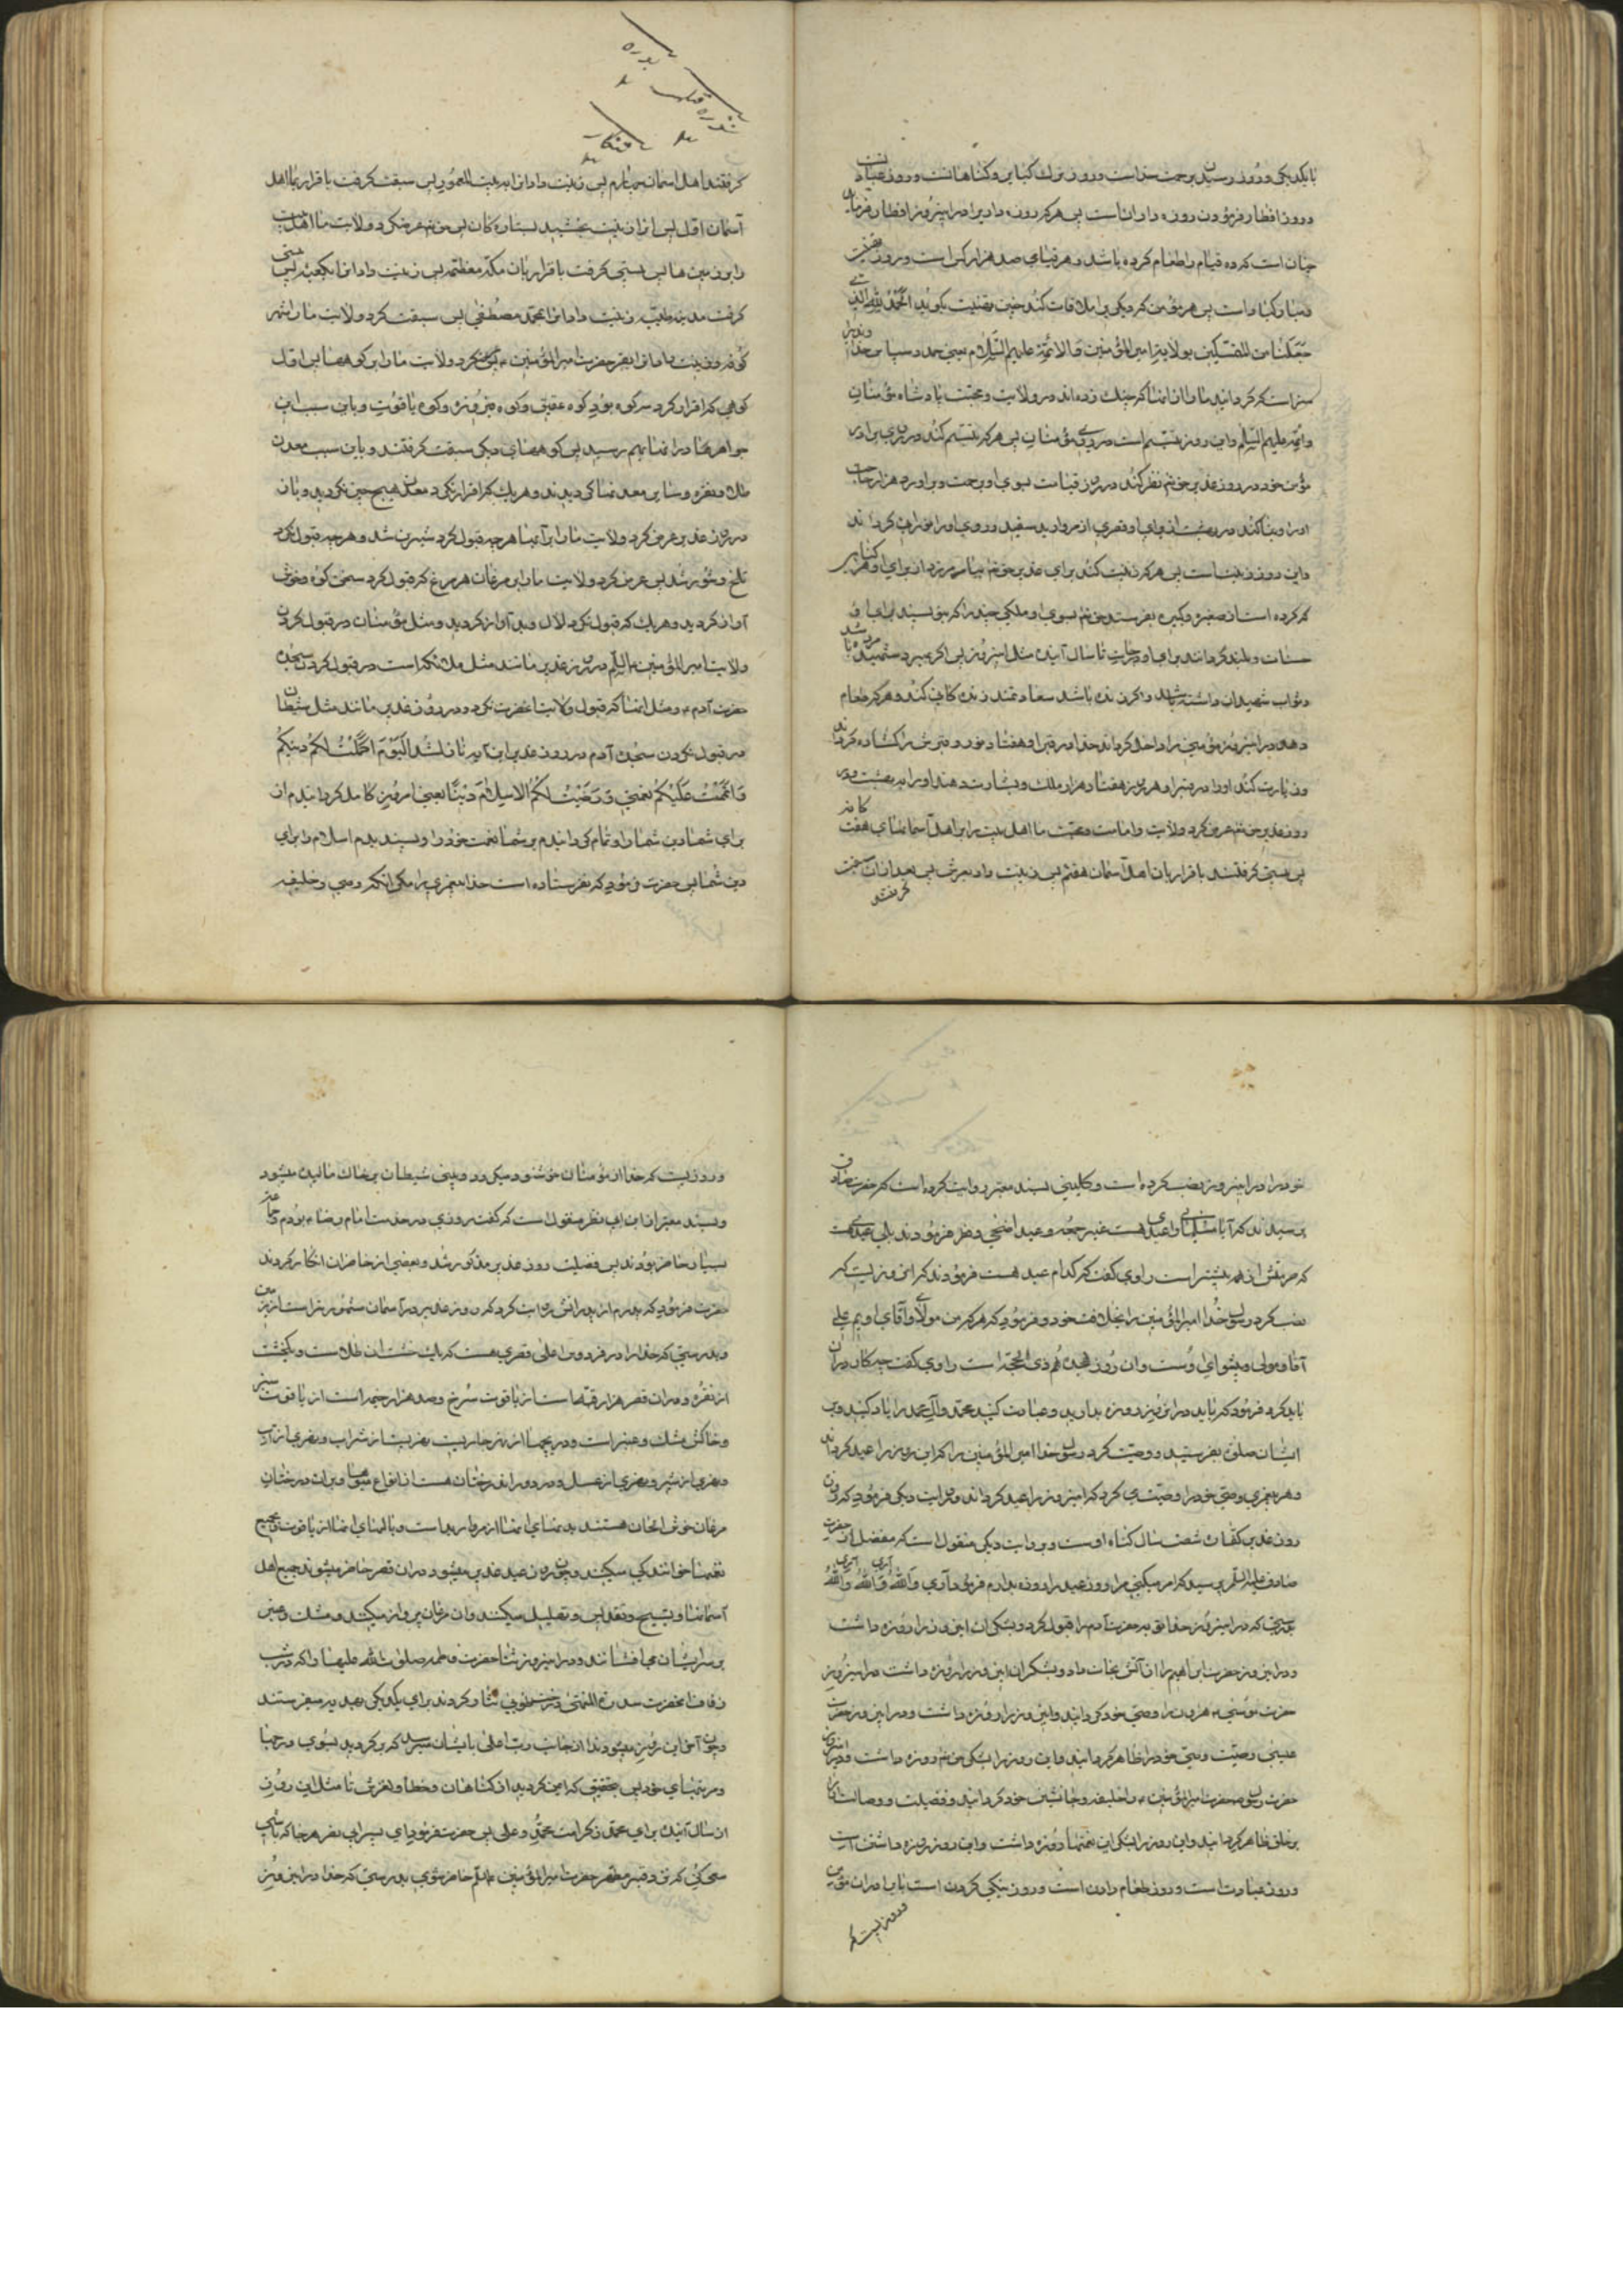 با یکدیکر و روز رسیدن برحمت خداست و روز ترك کبایر و کناهانست و روز عبادتست
و روز افطار فرمودن روزه دارانست پس هر که روزه داریرا در این روز افطار فرماید
چنان است که ده فیام را طعام کرده باشد و هر فیامی صد هزار کس است و روز تهنیت
و مبارکباد است پس هر مؤمن که دیکریرا ملاقات کند چنین تهنیت بکوید الحمد لله الذی
جعلنا من المتمسکین بولایة امیر المؤمنین و الائمة علیهم السلام یعنی حمد و سپاس خداوندیرا
سزاست که کردانید مارا از آنها که چنك زده‌اند در ولایت و محبت پادشاه مؤمنان
و ائمه علیهم السلم و این روز تبسم است در روی مؤمنان پس هر که تبسم کند در روی برادر
مؤمن خود در روز غدیر حق تم نظر کند در روز قیامت بسوی او برحمت و براورد هزار حاجت
اورا و بنا کند در بهشت از برای او قصری از مروارید سفید و روی اورا نورانی کرداند
و این روز زینتست پس هر که زینت کند برای غدیر حق تم بیامرزد از برای او هر کناهی
که کرده است از صغیره و کبیره و بفرستد حق تم بسوی او ملکی چند را که بنویسند برای او
حسنات و بلند کردانند برای او درجات تا سال آینده مثل این روز پس اکر بمیرد شهید مرده باشد
و ثواب شهیدان داشته باشد و اکر زنده باشد سعادتمند زندکانی کند و هر که طعام
دهد در این روز مؤمنی را داخل کرداند خدا در قبر او هفتاد نور و قبرش را کشاده کرداند
و زیارت کند اورا در قبر او هر روز هفتاد هزار ملك و بشارت دهند اورا به بهشت و در
روز غدیر حق تم عرض کرد ولایت و امامت و محبت ما اهل بیت را بر اهل آسمانهای هفت کانه
پس سبقت کرفتند باقرار بان اهل آسمان هفتم پس زینت داد بعرش پس بعد از ان سبقت
کرفتند
کرفتند اهل آسمان چهارم پس زینت داد انرا به بیت المعمور پس سبقت کرفت باقرار بما اهل
آسمان اول پس انرا زینت بخشید بستاره کان پس حق تم عرض کرد ولایت ما اهل بیت
را بر زمین ها پس پیشی کرفت باقرار بان مکه معظمه پس زینت داد انرا بکعبه پس پیشی
کرفت مدینه طیبه و زینت داد انرا بمحمد مصطفی پس سبقت کرد ولایت ما را شهر
کوفه و زینت داد انرا بقبر حضرت امیر المؤمنین ع پس عرض کرد ولایت ما را بر کوهها پس اول
کوهی که اقرار کرد سه کوه بود کوه عقیق و کوه فیروزه و کوه یاقوت و باین سبب این
جواهرها در انها بهم رسید پس کوههای دیکر سبقت کرفتند و باین سبب معدن
طلا و نقره و سایر معدنها کردیدند و هر یك که اقرار نکرد معدن هیچ چیز نکردید و بان
در روز غدیر عرض کرد ولایت ما را بر آبها هر چه قبول کرد شیرین شد و هر چه قبول نکرد
تلخ و شور شد پس عرض کرد ولایت ما را بر مرغان هر مرغ که قبول کرد سخن کو و خوش
آواز کردید و هر یك که قبول نکرد لال و بد آواز کردید و مثل مؤمنان در قبول کردن
ولایت امیر المؤمنین علیه السلم در روز غدیر مانند مثل ملائکه است در قبول کردن سجده
حضرت آدم ع و مثل انها که قبول ولایت انحضرت نکردند در روز غدیر مانند مثل شیطان
در قبول نکردن سجده آدم در روز غدیر این آیه نازل شد الیوم اکملت لکم دینکم
و اتممت علیکم نعمتی و رضیت لکم الاسلام دینا یعنی امروز کامل کردانیدم از
برای شما دین شما را و تمام کردانیدم بر شما نعمت خود را و پسندیدم اسلام را برای
دین شما پس حضرت فرمود که نفرستاده است خدا پیغمبری را مکر انکه وصی و خلیفه
خود را در این روز نصب کرده است و کلینی بسند معتبر روایت کرده است که حضرت صادق
پرسیدند که آیا مسلمانان را عیدی هست غیر جمعه و عید اضحی و فطر فرمودند بلی عیدی هست
که حرمتش از همه بیشتر است راوی کفت که کدام عید هست فرمودند که انروزیست که
نصب کرد رسول خدا امیر المؤمنین را بخلافت خود و فرمود که هر که من مولای و آقای اویم علی
آقا و مولی و پیشوای اوست و ان روز هجدهم ذی الحجه است راوی کفت چه کار در ان
باید کرد فرمود که باید در این روز روزه بدارید و عبادت کنید محمد و آل محمد را یاد کنید و بر
ایشان صلوة بفرستید و وصیت کرد رسول خدا امیر المؤمنین را که این روز را عید کرداند
و هر پیغمبری وصی خود را وصیت می کرد که این روز را عید کرداند و در روایت دیکر فرمود که روزه
روز غدیر کفارت شصت سال کناه اوست و بروایت دیکر منقول است که مفضل از حضرت
صادق علیه السلم پرسید که امر میکنی مرا روز عید را روزه بدارم فرمود آری والله آری والله آری والله
بدرستی که در این روز خدا توبه حضرت آدم را قبول کرد و بشکران این روز را روزه داشت
و در این روز حضرت ابراهیم را از آتش نجات داد و بشکران این روز را روزه داشت در این روز
حضرت موسی ع هرون را وصی خود کردانید و این روز را روزه داشت و در این روز حضرت
عیسی وصیت وصی خود را ظاهر کردانید و این روز را بشکر حق تم روزه داشت و در این روز
حضرت رسول ص حضرت امیر المؤمنین ع را خلیفه و جانشین خود کردانید و فضیلت و وصایت ان را
بر خلق ظاهر کردانید و این روز را بشکر این نعمتها روزه داشت و این روز روزه داشتن است
و روز عبادت است و روز طعام دادن است و روز نیکی کردن است با برادران مؤمن
و روزیست که
و روزیست که خدا از مؤمنان خوشنود میکردد و بینی شیطان بر خاك مالیده میشود
و بسند معتبر از ابن ابی نصر منقول است که کفت روزی در خدمت امام رضا ع بودم و جماعتی
بسیار حاضر بودند پس فضیلت روز غدیر مذکور شد و بعضی از حاضران انکار کردند
حضرت فرمود که پدرم از پدرانش روایت کرد که روز غدیر در آسمان مشهورتر است از زمین
و بدرستی که خدا را در فردوس اعلی قصری هست که یك خشت ان طلاست و یکخشت
از نقره و در ان قصر هزار قبه است از یاقوت سرخ و صد هزار خیمه است از یاقوت سبز
و خاکش مشك و عنبر است و در او چهار نهر جاریست نهریست از شراب و نهری از آب
و نهری از شیر و نهری از عسل و در دور انها درختان هست از انواع میوه‌ها و بر ان درختان
مرغان خوش الحان هستند بدنهای انها از مروارید است و بالهای انها از یاقوت و بجمیع
نغمها خوانندکی میکنند و چون روز عید غدیر میشود در ان قصر حاضر میشوند جمیع اهل
آسمانها و تسبیح و تقدیس و تهلیل میکنند و ان مرغان پرواز میکنند و مشك و عنبر
بر سر ایشان می افشانند و در این روز نثار حضرت فاطمه صلوات الله علیها را که در شب
زفاف انحضرت سدرة المنتهی و درخت طوبی نثار کردند برای یکدیکر بهدیه میفرستند
و چون آخر این روز میشود ندا از جانب رب اعلی بایشان میرسد که بر کردید بسوی درجها
و مرتبهای خود پس بتحقیق که ایمن کردید از کناهان و خطا و لغزش تا مثل این روز
از سال آینده برای محمد ز کرامت محمد و علی پس حضرت فرمود ای پسر ابی نصر هر جا که باشی
سعی کن که نزد قبر مطهر حضرت امیر المؤمنین علیه السلم حاضر شوی بدرستی که خدا در این روز